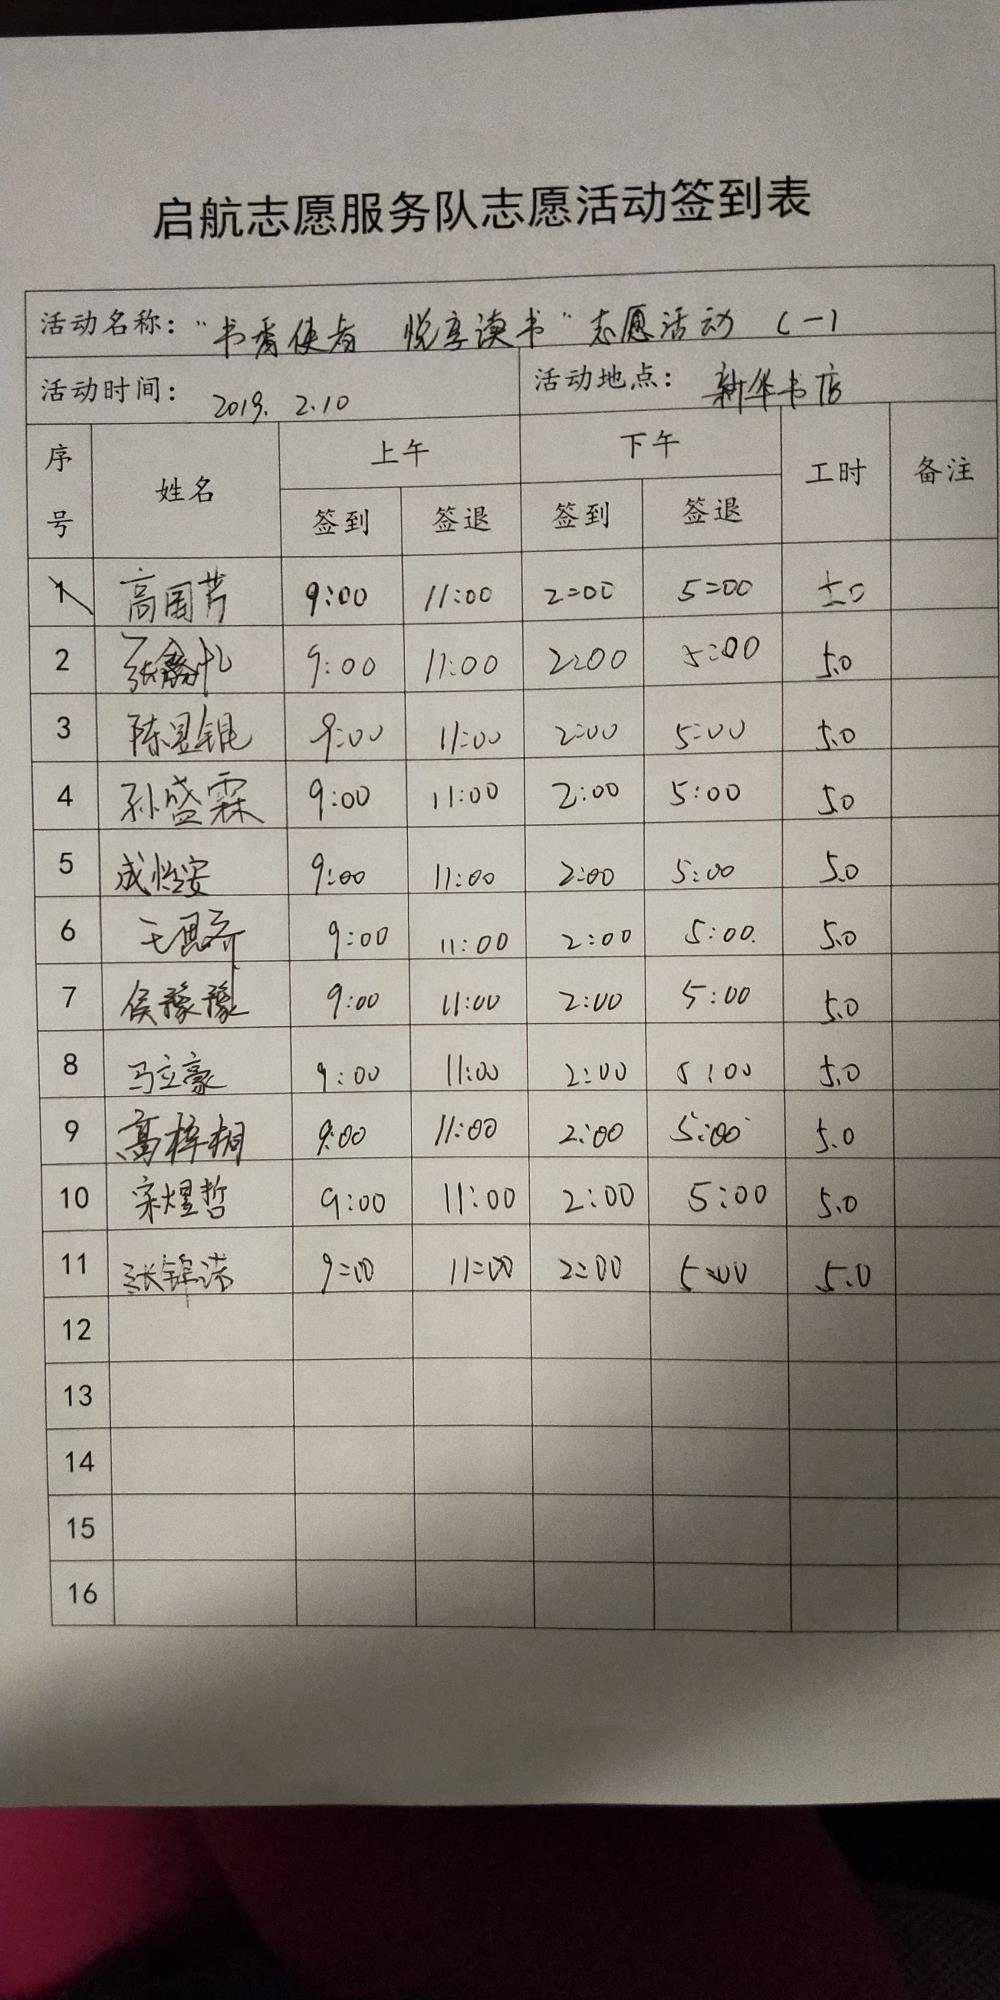 启航志愿服务队志愿活动签到表
活动名称："书香使者 悦享读书"志愿活动 (一)
活动时间：2019.2.10 活动地点：新华书店
序号 姓名 上午 下午 工时 备注
签到 签退 签到 签退
1 高国芳 9:00 11:00 2:00 5:00 5.0
2 张 9:00 11:00 2:00 5:00 5.0
3 陈昱锟 9:00 11:00 2:00 5:00 5.0
4 孙盛霖 9:00 11:00 2:00 5:00 5.0
5 成怡安 9:00 11:00 2:00 5:00 5.0
6 王思齐 9:00 11:00 2:00 5:00 5.0
7 侯豫豫 9:00 11:00 2:00 5:00 5.0
8 马立豪 9:00 11:00 2:00 5:00 5.0
9 高梓桐 9:00 11:00 2:00 5:00 5.0
10 宋煜哲 9:00 11:00 2:00 5:00 5.0
11 张锦涛 9:00 11:00 2:00 5:00 5.0
12
13
14
15
16